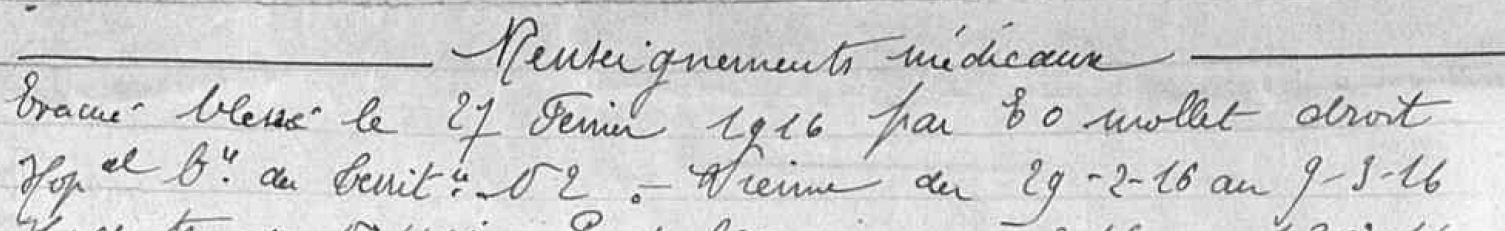 Renseignements médicaux
Evacué blessé le 27 Fevrier 1916 par EO mollet droit
Hop al du territ re 2 - Vienne du 29-2-16 au 9-3-16